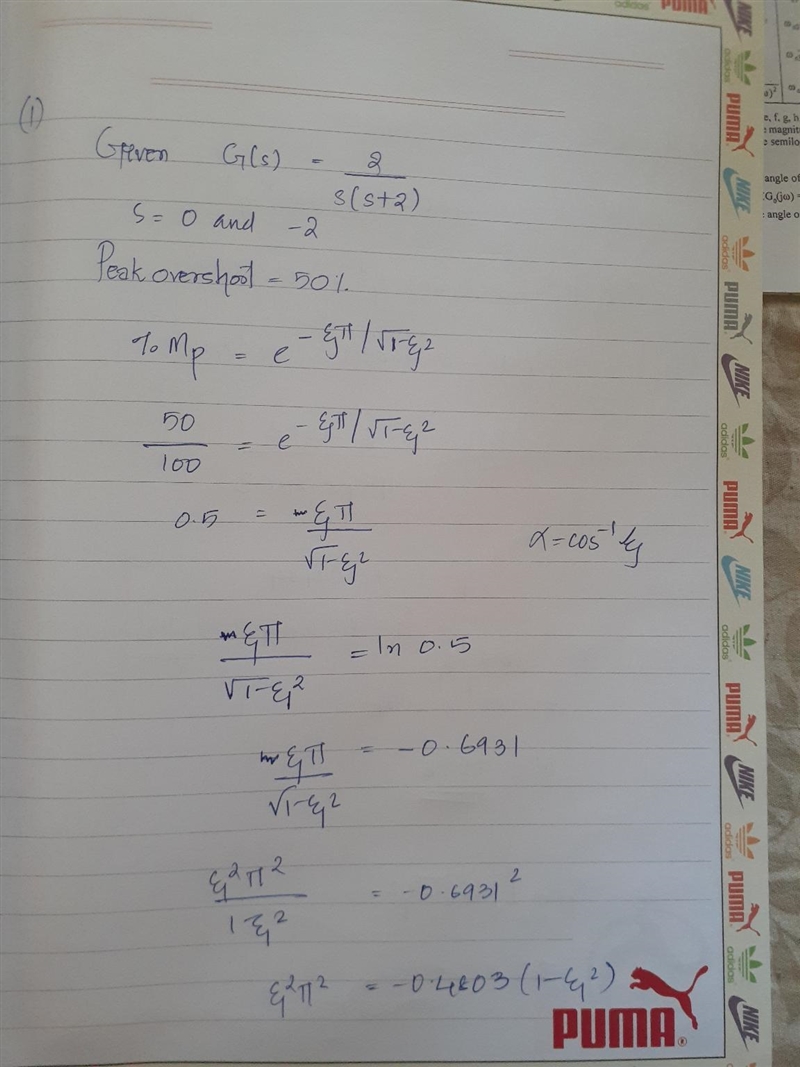 (1)
Given G(s) = 2 / s(s+2)
s = 0 and -2
Peak overshoot = 50%.
% Mp = e^-ξπ/√1-ξ²
50/100 = e^-ξπ/√1-ξ²
0.5 = -ξπ/√1-ξ²
α = cos⁻¹ ξ
-ξπ/√1-ξ² = ln 0.5
-ξπ/√1-ξ² = -0.6931
ξ²π²/1-ξ² = -0.6931²
ξ²π² = -0.4803 (1-ξ²)
PUMA
PUMA
NIKE
adidas
PUMA
NIKE
adidas
PUMA
NIKE
adidas
PUMA
NIKE
adidas
PUMA
NIKE
adidas
PUMA
NIKE
adidas
e, f, g, h
magnit
semilo
angle of
G₃(jω) =
angle o